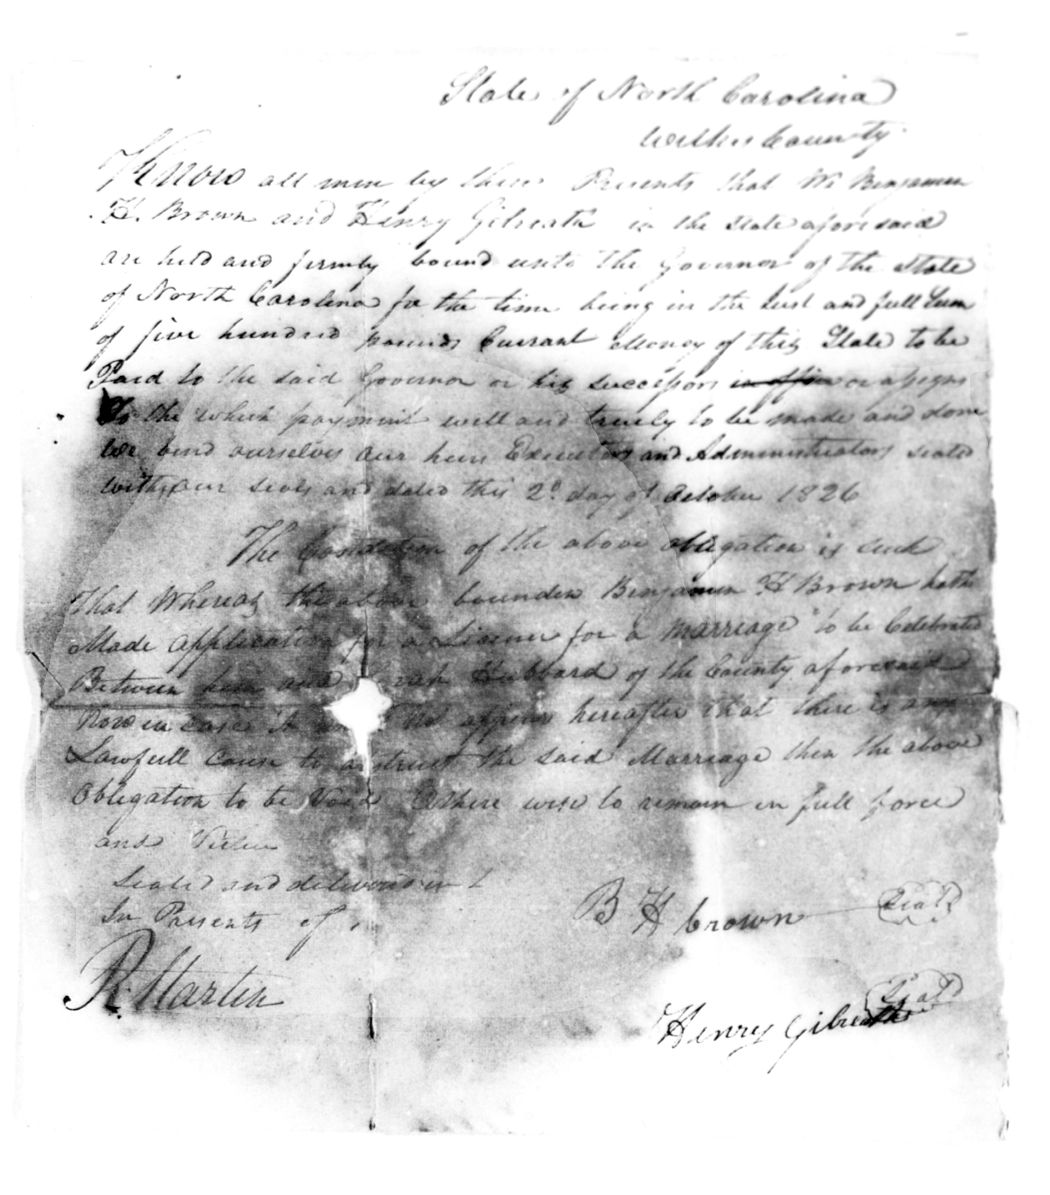 State of North Carolina
Wilkes County
Know all men by these Presents that We Benjamin
H. Brown and Henry Gilreath in the State aforesaid
are held and firmly bound unto the Governor of the State
of North Carolina for the time being in the Just and full Sum
of five hundred pounds Currant Money of this State to be
Paid to the said Governor or his successors in office or assigns
To the which payment well and truely to be made and done
We bend ourselves our heirs Executors and Administrators sealed
with our seals and dated this 2d day of October 1826
The Condition of the above obligation is such
That Whereas the above bounden Benjamin H Brown hath
Made application for a Licence for a Marriage to be Celebrated
Between him and Sarah Hubbard of the County aforesaid
Now in case it not appear hereafter that there is any
Lawfull Cause to obstruct the said Marriage then the above
Obligation to be Void Otherwise to remain in full force
and
Sealed and delivered in
In Presents of
B H Brown Seal
R. Martin
Henry Gilreath Seal